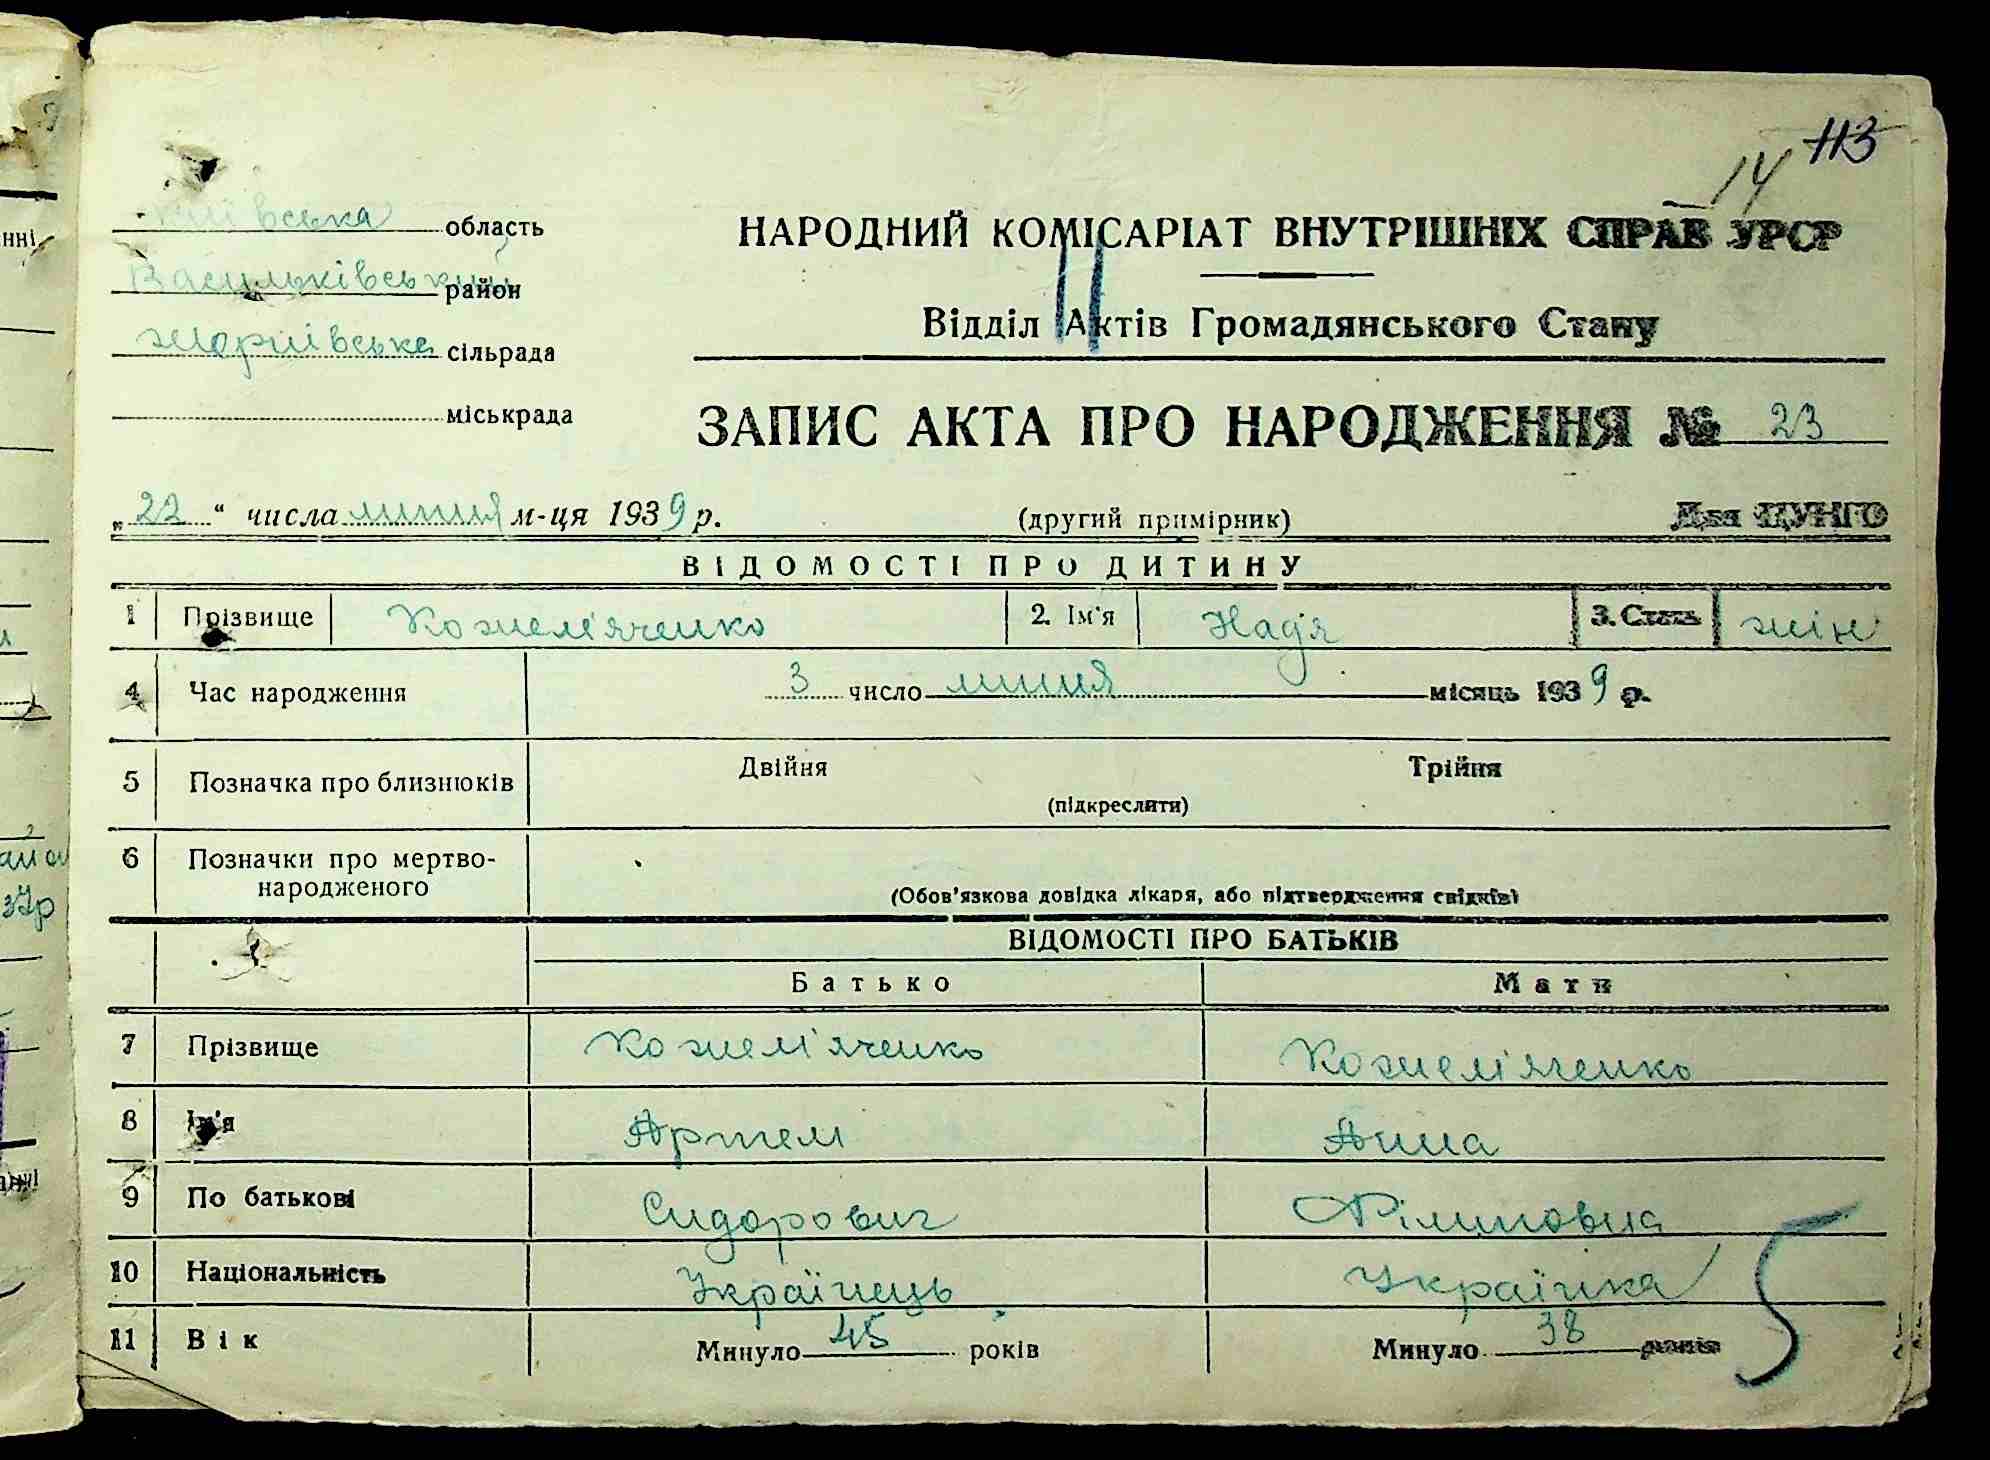 113
14
Київська область
НАРОДНИЙ КОМІСАРІАТ ВНУТРІШНІХ СПРАВ УРСР
Васильківський район
Відділ Актів Громадянського Стану
сільрада
міськрада
ЗАПИС АКТА ПРО НАРОДЖЕННЯ № 23
„22“ числа липня м-ця 1939 р. (другий примірник) Для ЦУНГО
ВІДОМОСТІ ПРО ДИТИНУ
1 Прізвище Кожем'яченко 2. Ім'я Надія 3. Стать жін
4 Час народження 3 число липня місяць 1939 р.
5 Позначка про близнюків Двійня Трійня
(підкреслити)
6 Позначки про мертво-
народженого
(Обов'язкова довідка лікаря, або підтвердження свідків)
ВІДОМОСТІ ПРО БАТЬКІВ
Батько Мати
7 Прізвище Кожем'яченко Кожем'яченко
8 Ім'я Артем Анна
9 По батькові Сидорович Філиповна
10 Національність Українець Українка
11 Вік Минуло 45 років Минуло 38 років
5